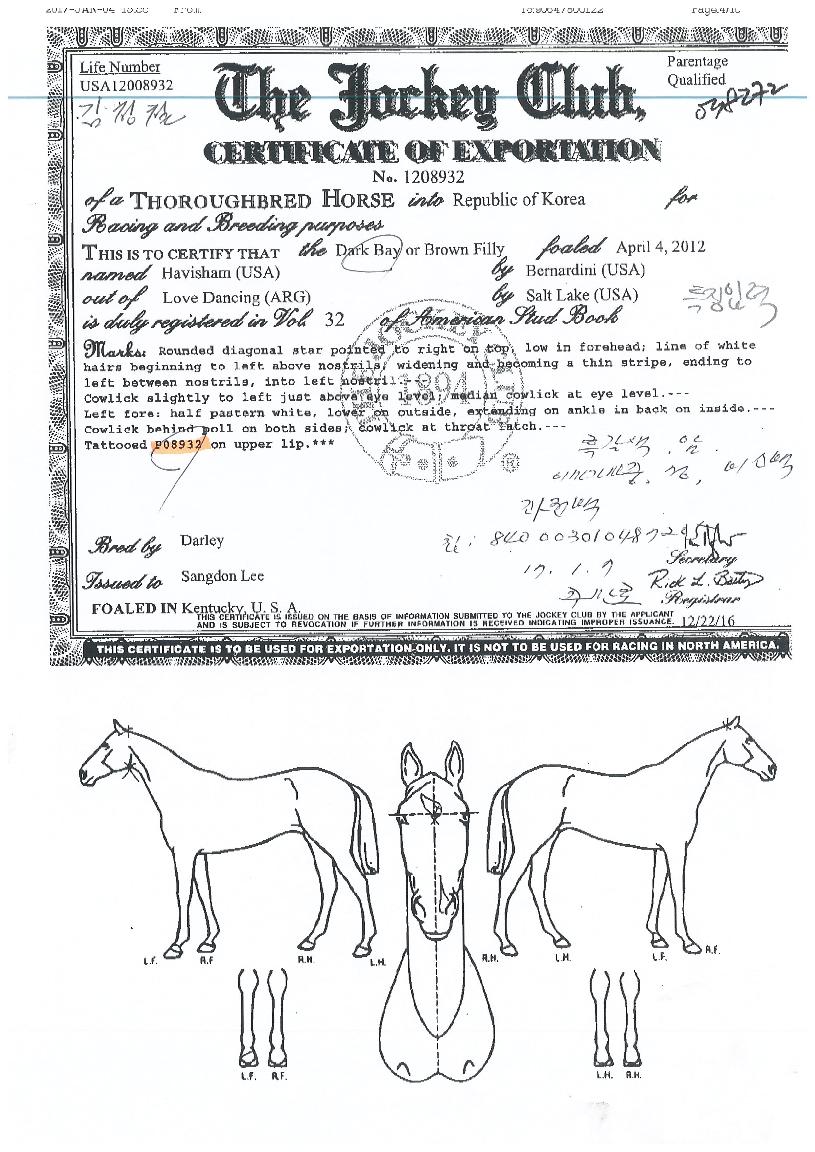 2017-JAN-04 From
Life Number
USA12008932
The Jockey Club,
Parentage
Qualified
048272
CERTIFICATE OF EXPORTATION
No. 1208932
of a THOROUGHBRED HORSE into Republic of Korea for
Racing and Breeding purposes
THIS IS TO CERTIFY THAT the Dark Bay or Brown Filly foaled April 4, 2012
named Havisham (USA) by Bernardini (USA)
out of Love Dancing (ARG) by Salt Lake (USA)
is duly registered in Vol. 32 of American Stud Book
Marks: Rounded diagonal star pointed to right on top, low in forehead; line of white
hairs beginning to left above nostrils, widening and becoming a thin stripe, ending to
left between nostrils, into left nostril.---
Cowlick slightly to left just above eye level; median cowlick at eye level.---
Left fore: half pastern white, lower on outside, extending on ankle in back on inside.---
Cowlick behind poll on both sides; cowlick at throat latch.---
Tattooed P08932 on upper lip.***
1894
®
Bred by Darley
Secretary
17. 1. 7
Issued to Sangdon Lee
Rick L. Bailey
Registrar
FOALED IN Kentucky, U. S. A.
THIS CERTIFICATE IS ISSUED ON THE BASIS OF INFORMATION SUBMITTED TO THE JOCKEY CLUB BY THE APPLICANT
AND IS SUBJECT TO REVOCATION IF FURTHER INFORMATION IS RECEIVED INDICATING IMPROPER ISSUANCE. 12/22/16
THIS CERTIFICATE IS TO BE USED FOR EXPORTATION ONLY. IT IS NOT TO BE USED FOR RACING IN NORTH AMERICA.
L.F. R.F. R.H. L.H. R.H. L.H. L.F. R.F.
L.F. R.F. L.H. R.H.